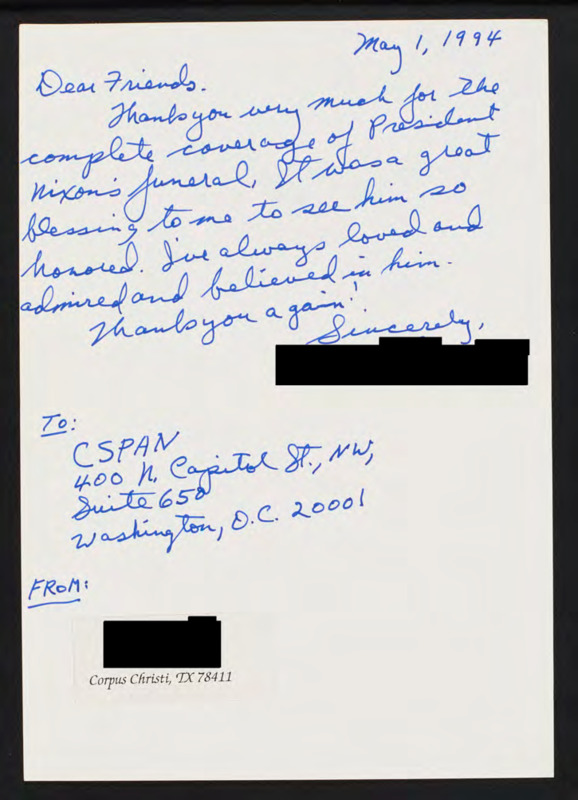 May 1, 1994
Dear Friends.
Thank you very much for the
complete coverage of President
Nixon's funeral. It was a great
blessing to me to see him so
honored. I've always loved and
admired and believed in him.
Thank you again!
Sincerely,
TO:
CSPAN
400 N. Capitol St., NW,
Suite 650
Washington, D.C. 20001
FROM:
Corpus Christi, TX 78411